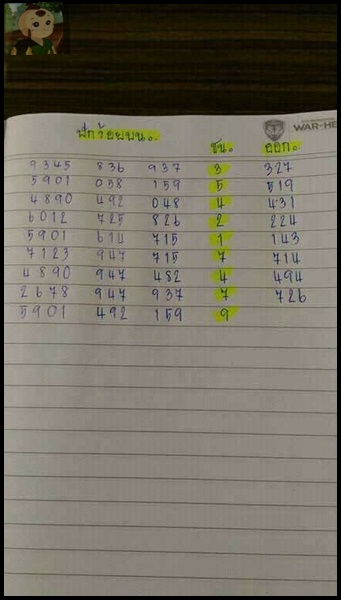 WAR-HE
ฟิกร้อยบน.
ชน. ออก.
9345 836 937 3 327
5901 058 159 5 519
4890 492 048 4 431
6012 725 826 2 224
5901 614 715 1 143
7123 947 715 7 714
4890 947 482 4 494
2678 947 937 7 726
5901 492 159 9